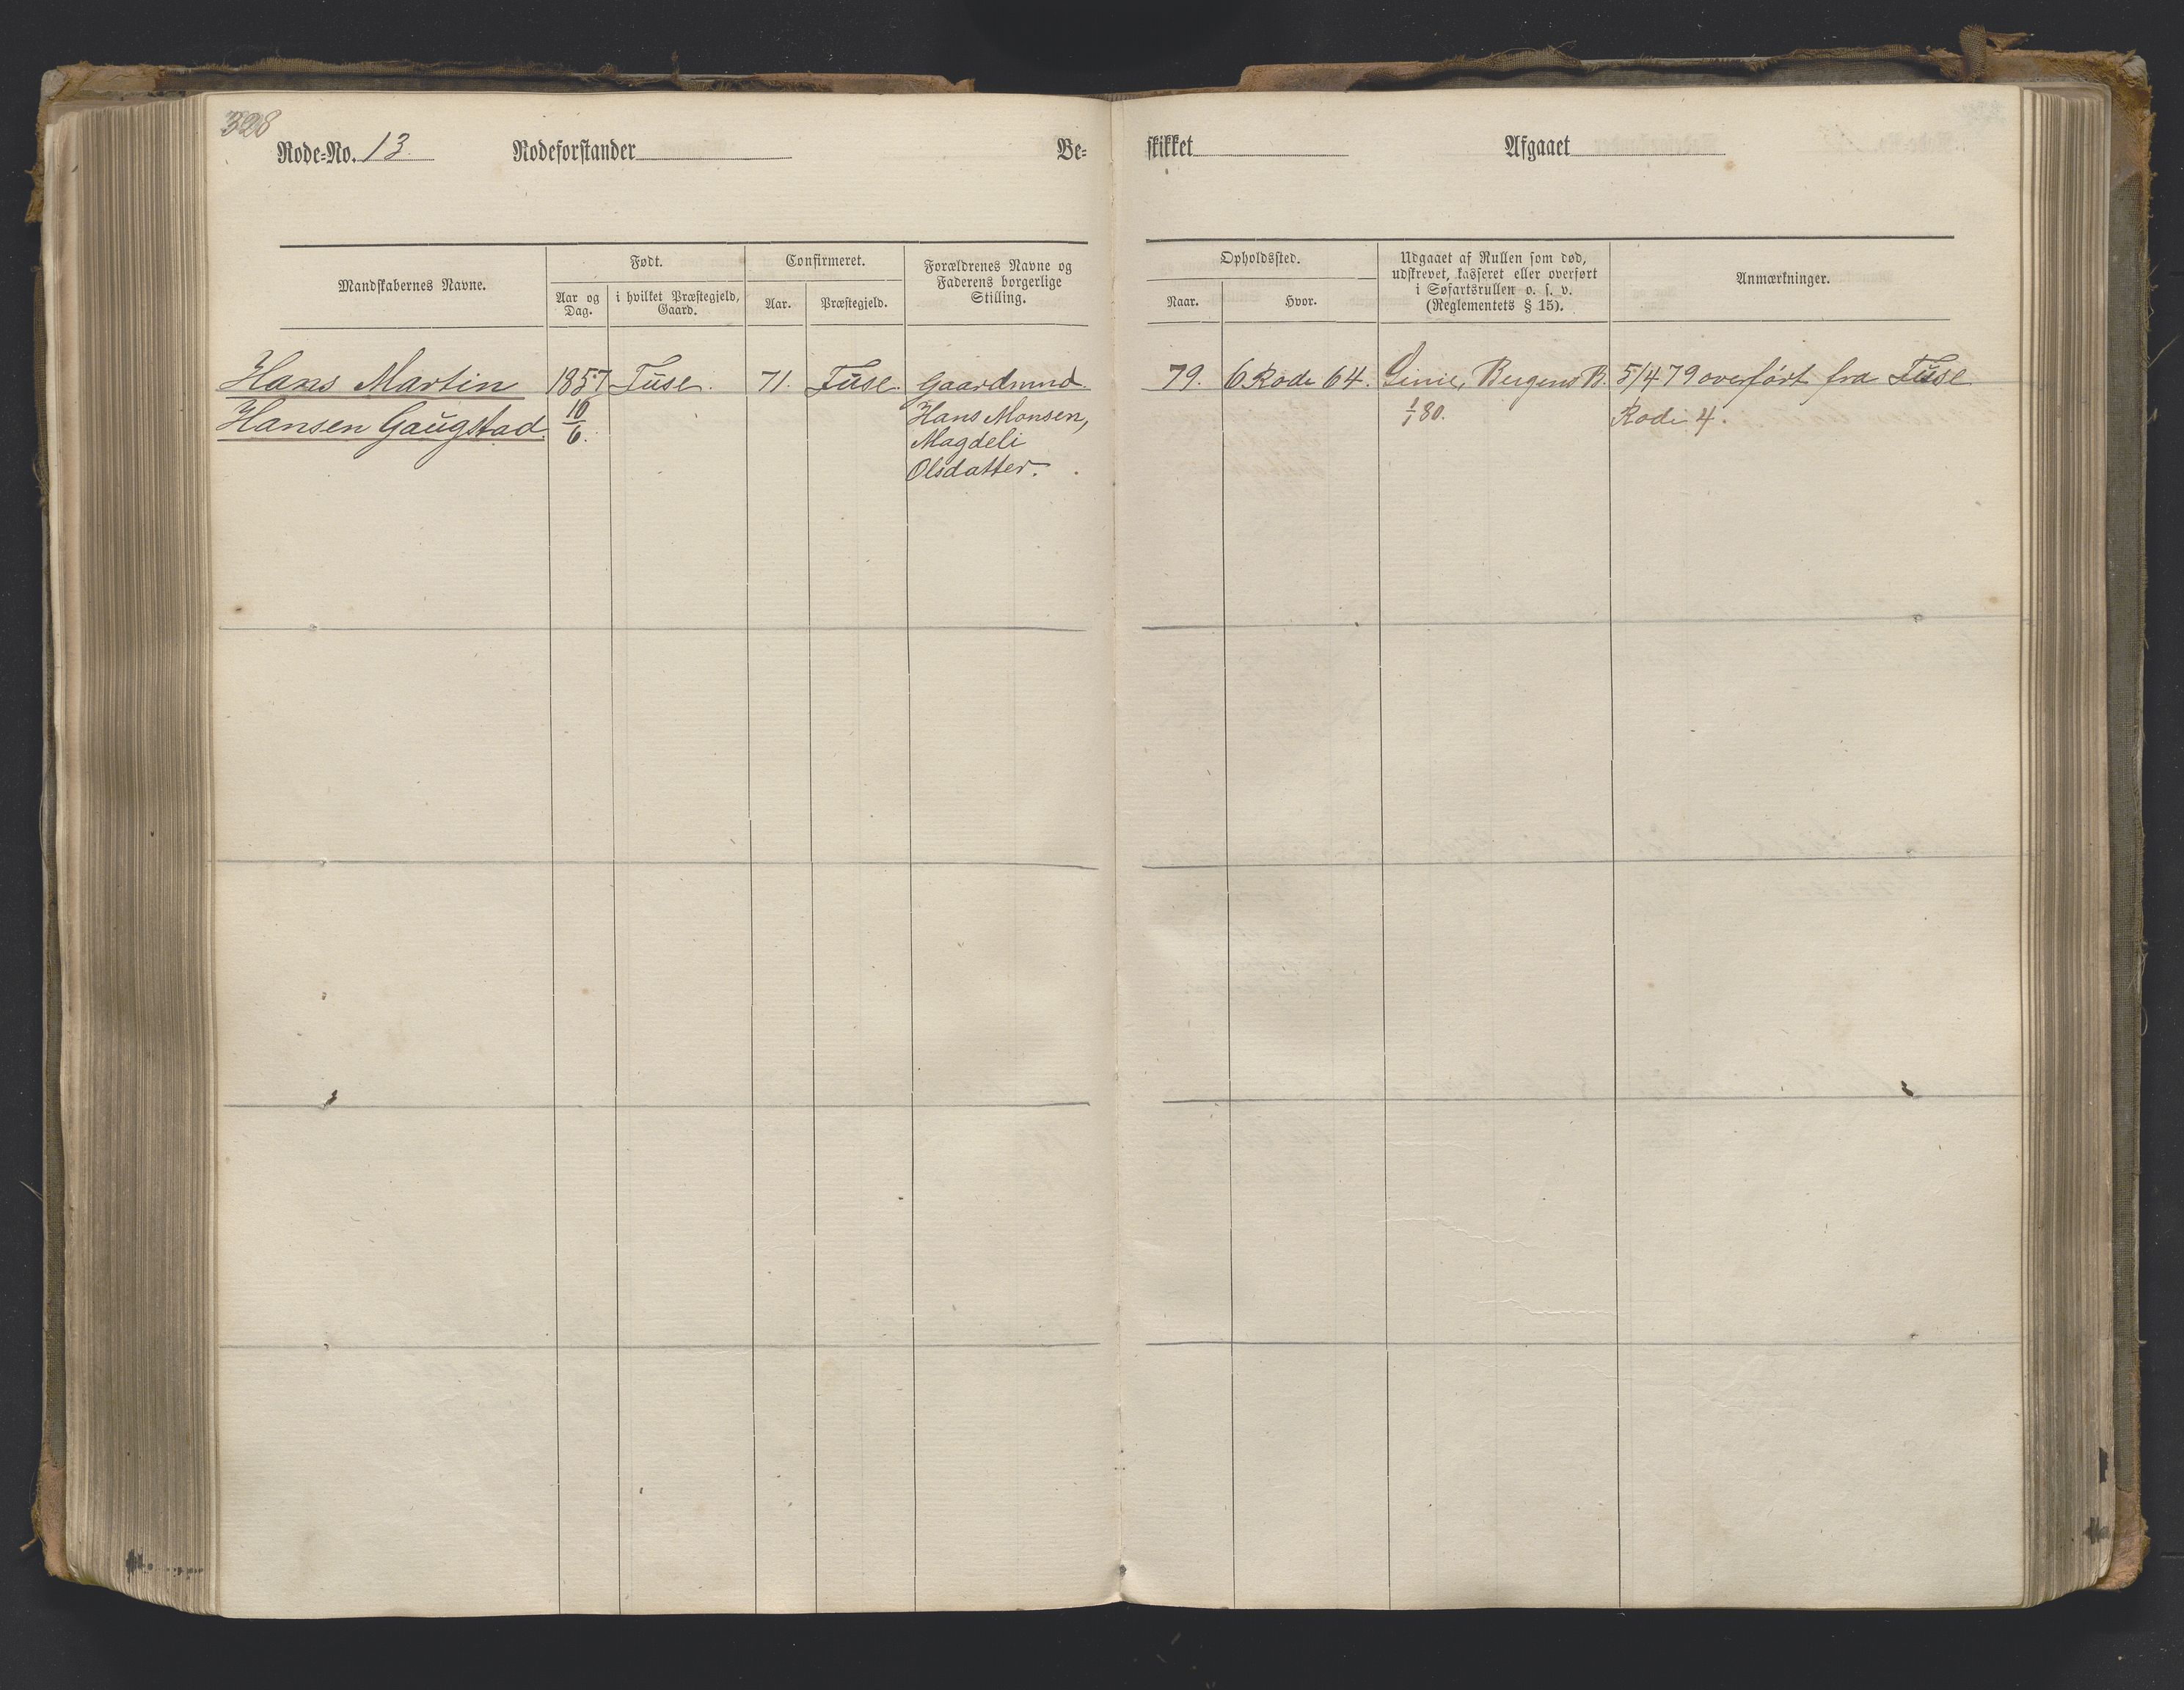 328
Rode=No. 13. Rodeforstander Be=
skikket Afgaaet
Mandskabernes Navne.
Født.
Aar og
Dag.
i hvilket Præstegjeld,
Gaard.
Confirmeret.
Aar.
Præstegjeld.
Forældrenes Navne og
Faderens borgerlige
Stilling.
Opholdssted.
Naar.
Hvor.
Udgaaet af Rullen som død,
udskrevet, kasseret eller overført
i Søfartsrullen o. s. v.
(Reglementets § 15).
Anmærkninger.
Hans Martin
Hansen Gaugstad.
1857
10/6.
Fuse.
71.
Fuse.
Gaardmd.
Hans Monsen,
Magdeli
Olsdatter.
79.
6 Rode 64.
Linie, Bergens B.
1/1 80.
5/4 79 overført fra Fuse
Rode 4.